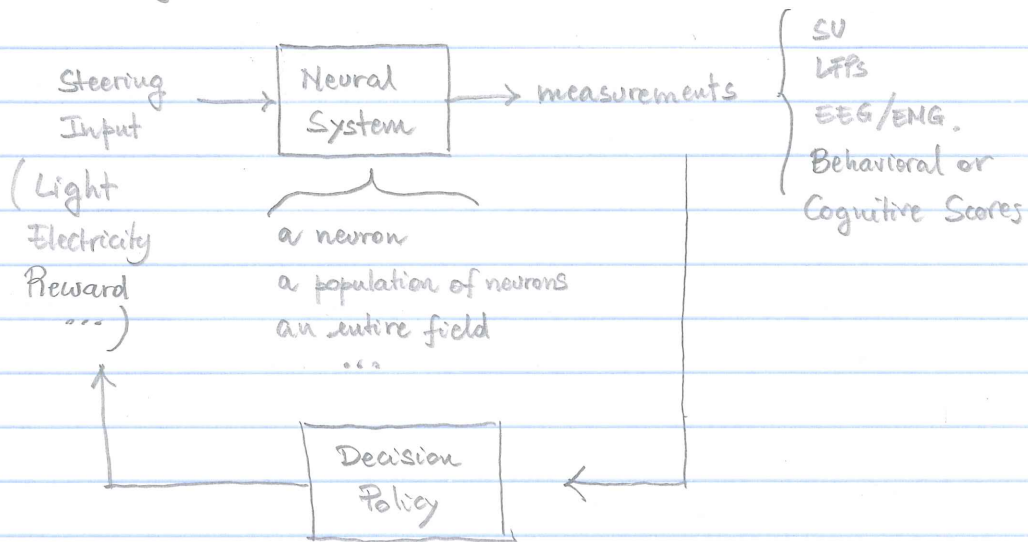 Steering
Input
(Light
Electricity
Reward
...)
Neural
System
a neuron
a population of neurons
an entire field
...
measurements
SU
LFPs
EEG/EMG.
Behavioral or
Cognitive Scores
Decision
Policy